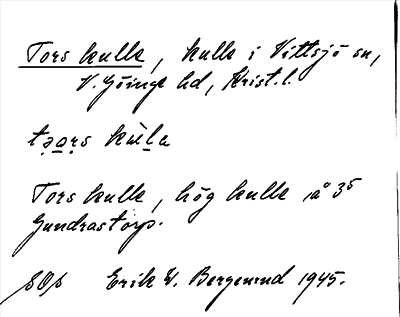 Tors kulle, kulle i Vittsjö sn,
V. Göinge hd, Krist. l.
Tors kulle, hög kulle å 3⁵
Gundrastorp.
SOÄ Erik W. Bergemrud 1945.